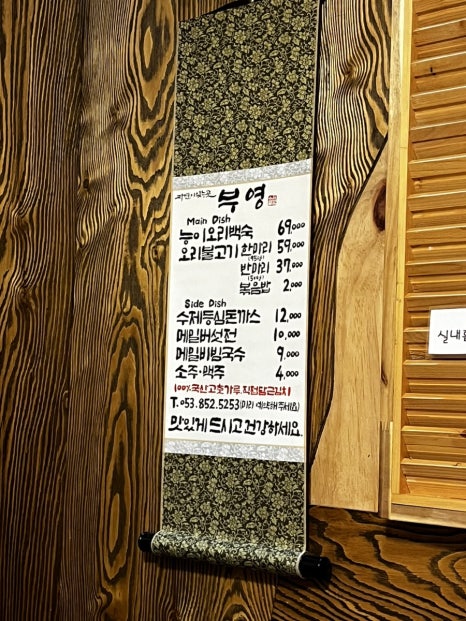 자연이 있는곳 부영
Main Dish
능이오리백숙 69,000
오리불고기 한마리 59,000
반마리 37,000
(500g)
볶음밥 2,000
Side Dish
수제등심돈까스 12,000
메밀버섯전 10,000
메밀비빔국수 9,000
소주·맥주 4,000
100% 국산고춧가루, 직접담근김치
T. 053.852.5253(미리 예약해주세요)
맛있게 드시고 건강하세요.
실내